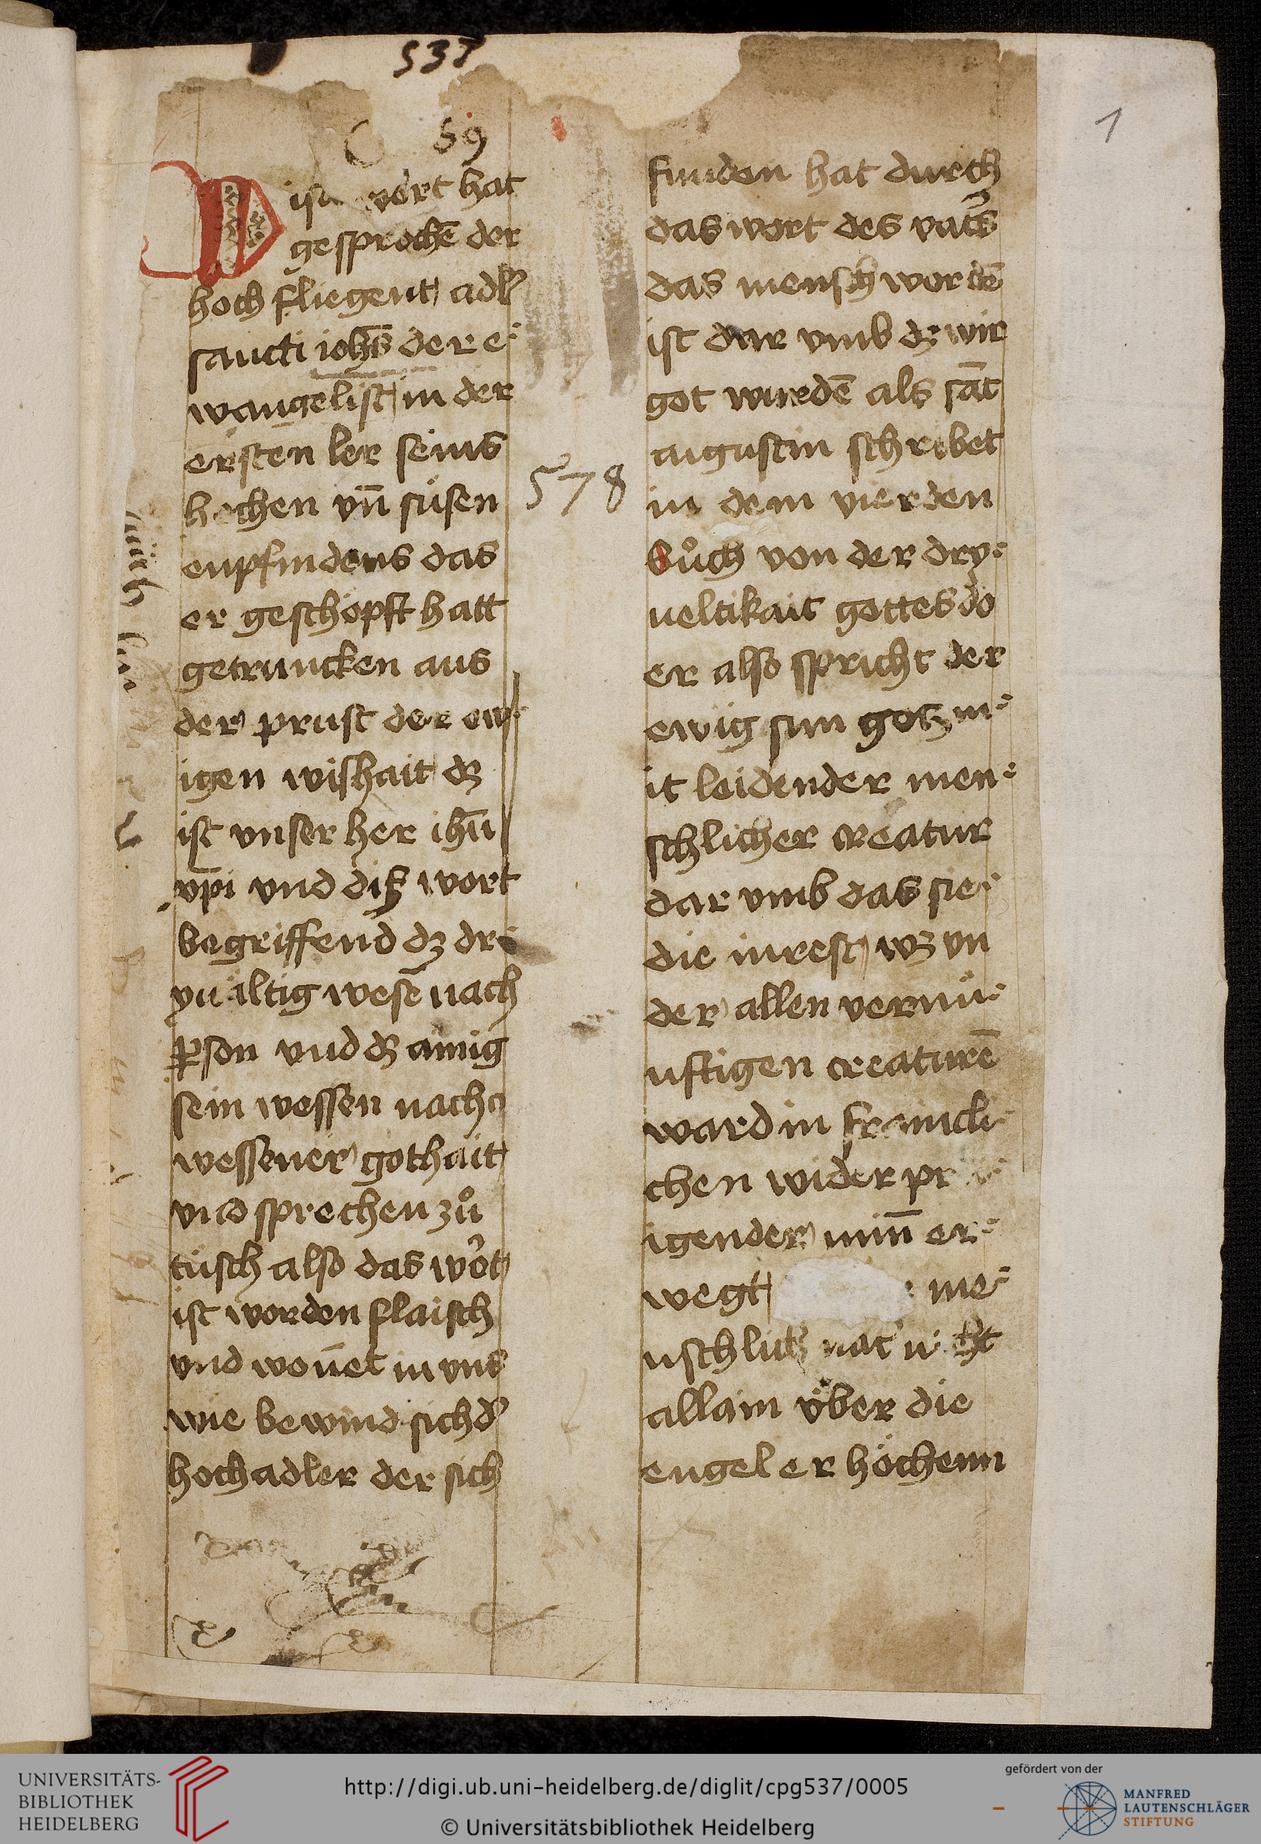 537
59
1
Dise wort hat
gesprochē der
hoch fliegent adlʼ
sancti johs̄ der e-
wangelist in der
ersten ler seins
hochen vn̄ süsen
enpfindens das
er geschöpft hatt
getruncken aus
der prust der ew-
igen wishait dz
ist vnser her ihū
xp̄i vnd diß wort
begriffend dz dri
uältig wesē nach
ꝑson vnd dz ainig
sein wessen nach
wessener gothait
vnd sprechen zů
tüsch also das wort
ist worden flaisch
vnd wonet in vns
wie bewind sich dʼ
hoch adler der sich
578
funden hat durch
das wort des vatʼs
das mensch wordē
ist dar vmb dz wir
got wurdē als sāt
augustin schribet
in dem vierden
bůch von der dry-
ueltikait gottes do
er also spricht der
ewig sun gotz m-
it leidender men-
schlicher creatur
dar vmb das sie-
die inrest wz vn
der allen vernü-
nftigen creaturē
ward in
chen wider
igender min̄ er-
wegt me-
nschlich
allain über die
engel er höchenn
UNIVERSITÄTS-
BIBLIOTHEK
HEIDELBERG
http://digi.ub.uni-heidelberg.de/diglit/cpg537/0005
© Universitätsbibliothek Heidelberg
gefördert von der
MANFRED
LAUTENSCHLÄGER
STIFTUNG